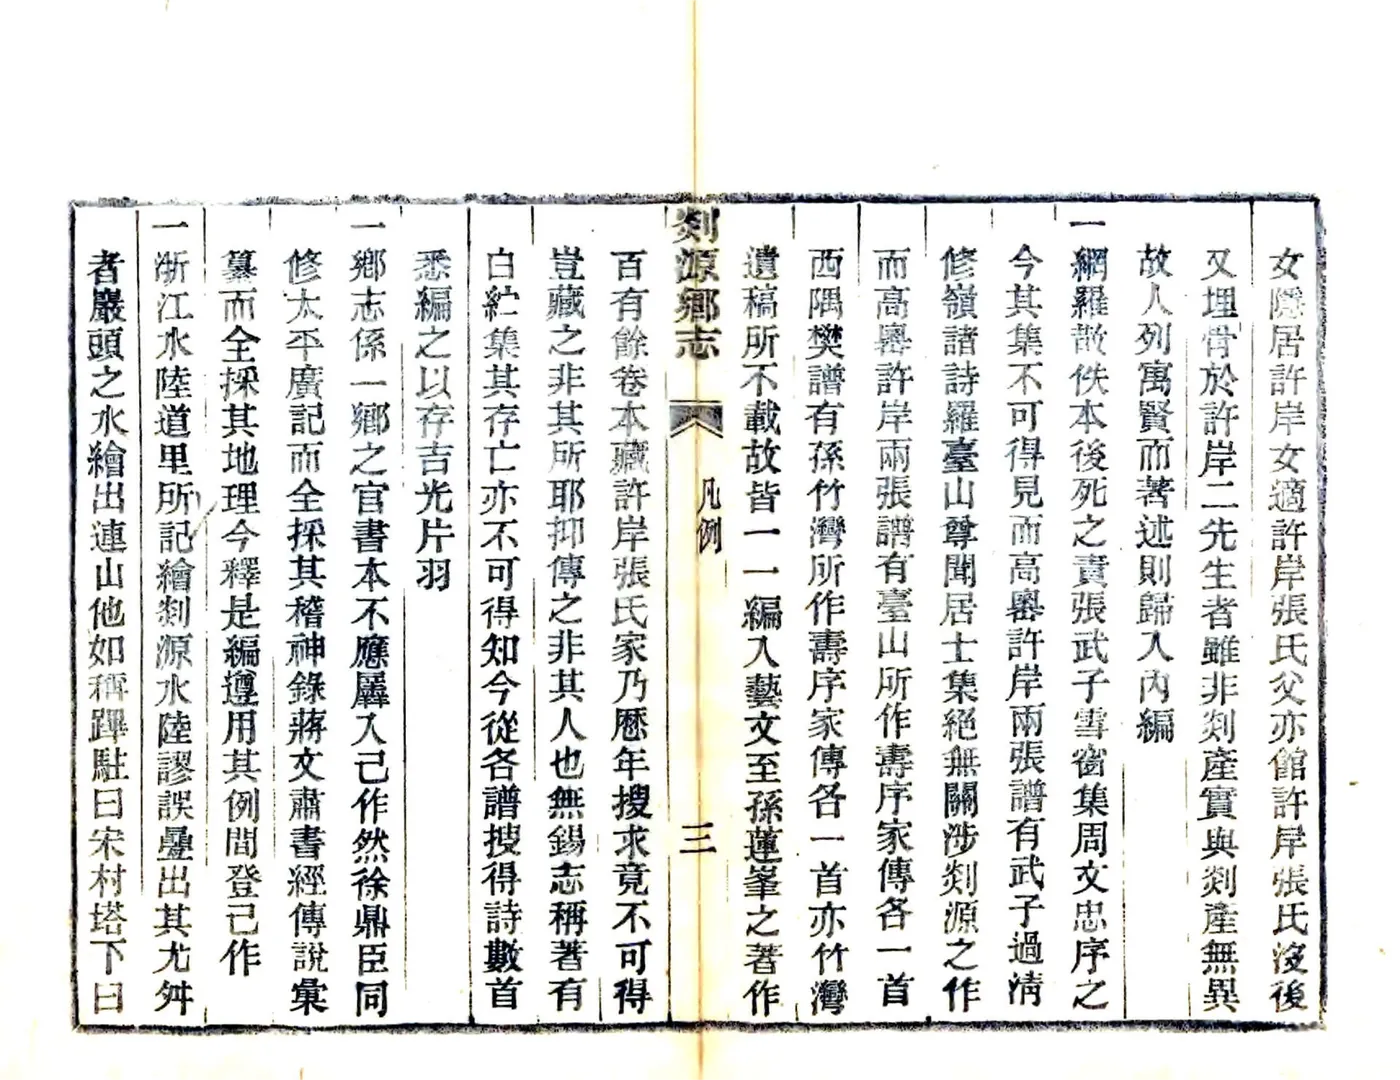 女隱居許岸女適許岸張氏父亦館許岸張氏沒後
又埋骨於許岸二先生者雖非剡產實與剡產無異
故人列寓賢而著述則歸入內編
一網羅散佚本後死之責張武子雪窗集周文忠序之
今其集不可得見而高嶴許岸兩張譜有武子過淸
修嶺諸詩羅臺山尊聞居士集絕無關涉剡源之作
而高嶴許岸兩張譜有臺山所作壽序家傳各一首
西隅樊譜有孫竹灣所作壽序家傳各一首亦竹灣
遺稿所不載故皆一一編入藝文至孫蓮峯之著作
剡源鄉志 凡例 三
百有餘卷本藏許岸張氏家乃歷年搜求竟不可得
豈藏之非其所耶抑傳之非其人也無錫志稱著有
白紵集其存亡亦不可得知今從各譜搜得詩數首
悉編之以存吉光片羽
一鄉志係一鄉之官書本不應羼入己作然徐鼎臣同
修太平廣記而全採其稽神錄蔣文肅書經傳說彙
纂而全採其地理今釋是編遵用其例間登己作
一浙江水陸道里所記繪剡源水陸謬誤疊出其尤舛
者巖頭之水繪出連山他如稱蹕駐曰宋村塔下曰